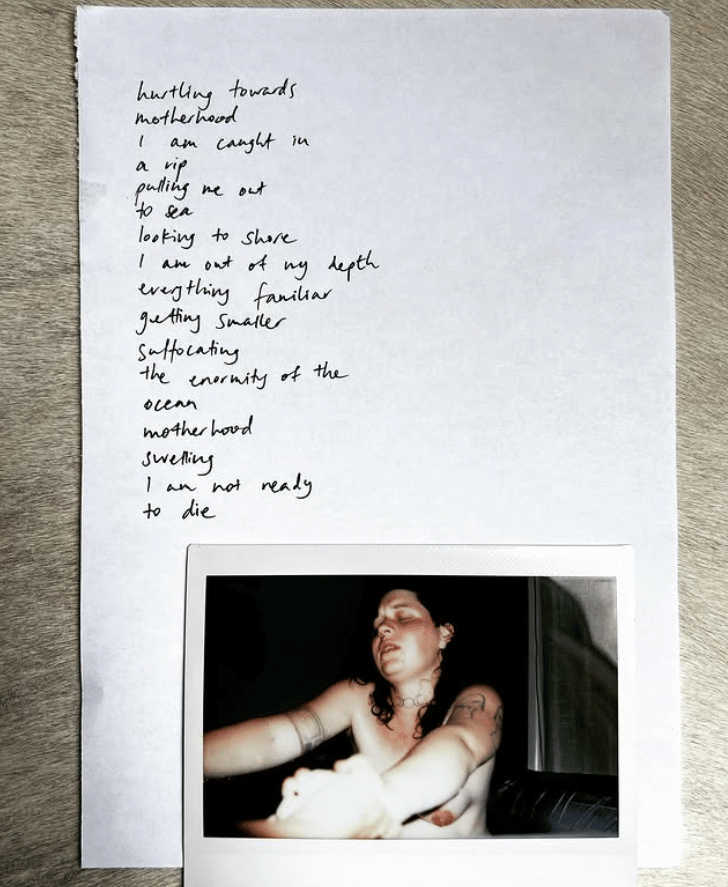 hurtling towards
motherhood
I am caught in
a rip
pulling me out
to sea
looking to shore
I am out of my depth
everything familiar
getting smaller
suffocating
the enormity of the
ocean
motherhood
swelling
I am not ready
to die